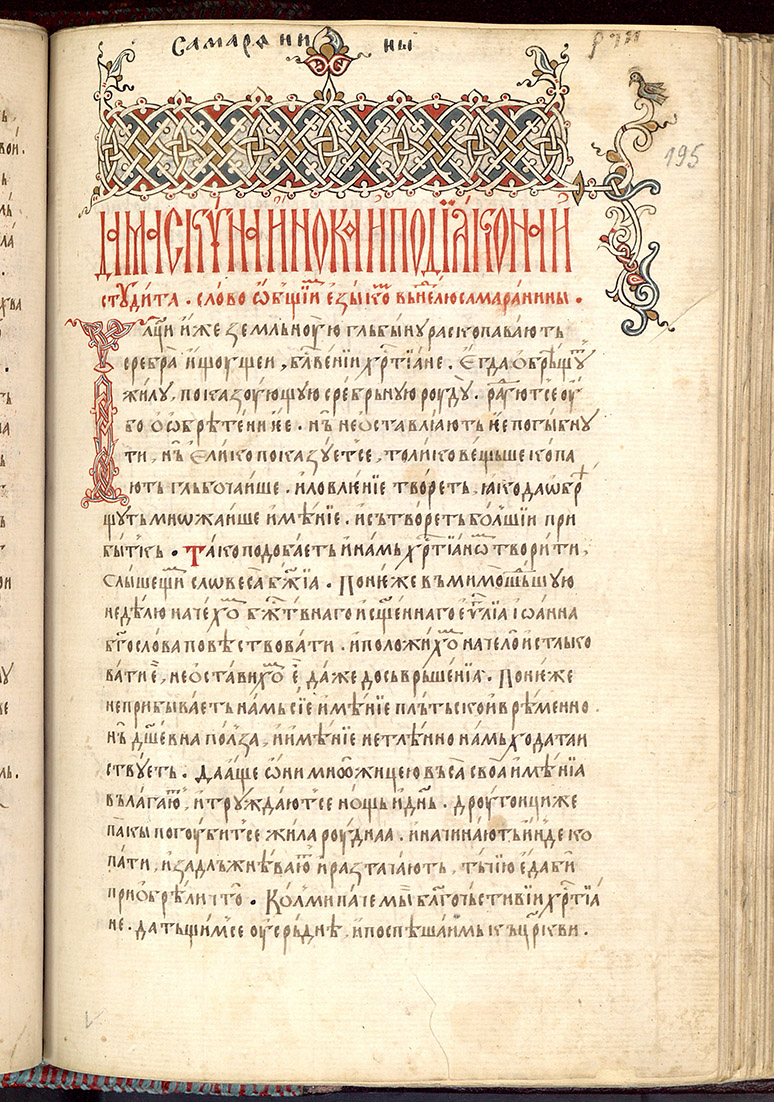 Самарѧни ны
195
даⷨаскѵ́на и҆нока и҆ и҆подїа́кона и҆
стꙋди́та . сло́во ѡ҆́бщїиⷨ е҆зы́коⷨ въ неⷣлю самаранины .
жⷷ зем҄льнꙋ́ю гльбы́нꙋ раскопаваютъ
сребра̀ и҆щꙋщеи , блⷭ҇венїи хрⷭ҇тїа́не . Е҆гда ѡ҆брѣщꙋⷮ
жи́лꙋ , показꙋ́ющꙋю сре́брьнꙋю рꙋ́дꙋ . раⷣꙋютсе ᲂу҆
бо ѡ҆ ѡ҆брѣ́тени е҆е . нь҆ не ѡ҆ставлꙗ́ють е҆е погы́бнꙋ
ти , нь҆ е҆ли́ко показꙋ́етсе , толи́ко ве́щьше копа
ють гльбоча́ише . и҆ ловлѥ́нїе творе́ть , ꙗ҆ко да ѡ҆брⷺ
щꙋть мно́жаише и҆мѣ́нїе . и҆ сътворе́ть бо́лшїи при
бы́ткь . Та́ко подоба́еть и҆ намь хрⷭ҇тїа́нѡⷨ твори́ти ,
слы́шещїи словеса̀ бж҃їа . Поне́же въ мимошⷣьшꙋю
недѣ́лю наче́хоⷨ бжⷭ҇твнаго и҆ сщ҃еннаго е҆ѵⷢ҇лїа і҆ѡа́нна
бг҃осло́ва повѣ́ствовати . и҆ положи́хоⷨ начело̀ и҆стлько
вати е҆̀ , не ѡ҆ста́вихоⷨ е҆̀ да́же до съврьше́нїа . Поне́же
не прибыва́еть на́мь сїѐ и҆мѣ́нїе пльтьско и҆ врѣ́менно .
нь҆ дш҃евна по́лꙁа , и҆ и҆мѣ́нїе нетлѣ́нно на́мь хода́таи
ствꙋеть . Да а҆́ще ѡ҆ни мно́жицею въса̀ своа̀ и҆мѣ́нїа
въла́гаюⷮ , и҆ трꙋжда́ютсе но́щь и҆ дн҃ь . дрꙋго́ици же
па́кы погꙋбитсе жи́ла рꙋднаа . и҆ начина́ють и҆́нде ко
па́ти , и҆ задльжнѣ́ваюⷮ и҆ растача́ють , тъ́чїю е҆да бы̀
при҆ѡбрѣ́ли что̀ . Ко́лми па́че мы̀ благочьсти́вїи хрⷭ҇тїа́
не . да тьщи́мсе ᲂу҆срьⷣнѣ , и҆ поспѣша́имь къ цр҃кви .